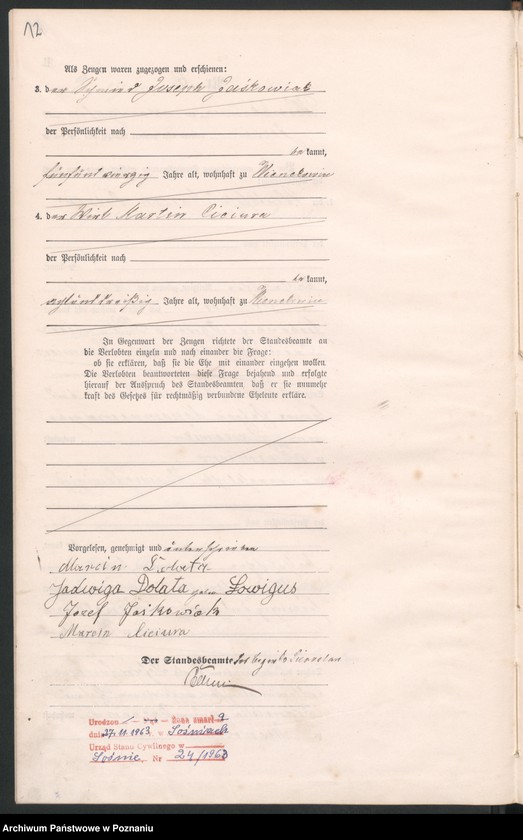 12
Als Zeugen waren zugezogen und erschienen:
3. der Schmied Joseph Jaśkowiak
der Persönlichkeit nach
be kannt,
fünfundvierzig Jahre alt, wohnhaft zu
4. der Wirt Martin Ciciura
der Persönlichkeit nach
be kannt,
achtunddreißig Jahre alt, wohnhaft zu
In Gegenwart der Zeugen richtete der Standesbeamte an
die Verlobten einzeln und nach einander die Frage:
ob sie erklären, daß sie die Ehe mit einander eingehen wollen.
Die Verlobten beantworteten diese Frage bejahend und erfolgte
hierauf der Ausspruch des Standesbeamten, daß er sie nunmehr
kraft des Gesetzes für rechtmäßig verbundene Eheleute erkläre.
Vorgelesen, genehmigt und unterschrieben
Marcin Dolata
Jadwiga Dolata geb. Łowigus
Jozef Jaśkowiak
Marcin Ciciura
Der Standesbeamte
Urodzon – Mąż – Żona zmarł a
dnia 27.11.1963 w
Urząd Stanu Cywilnego w
Nr 24/1963
Archiwum Państwowe w Poznaniu